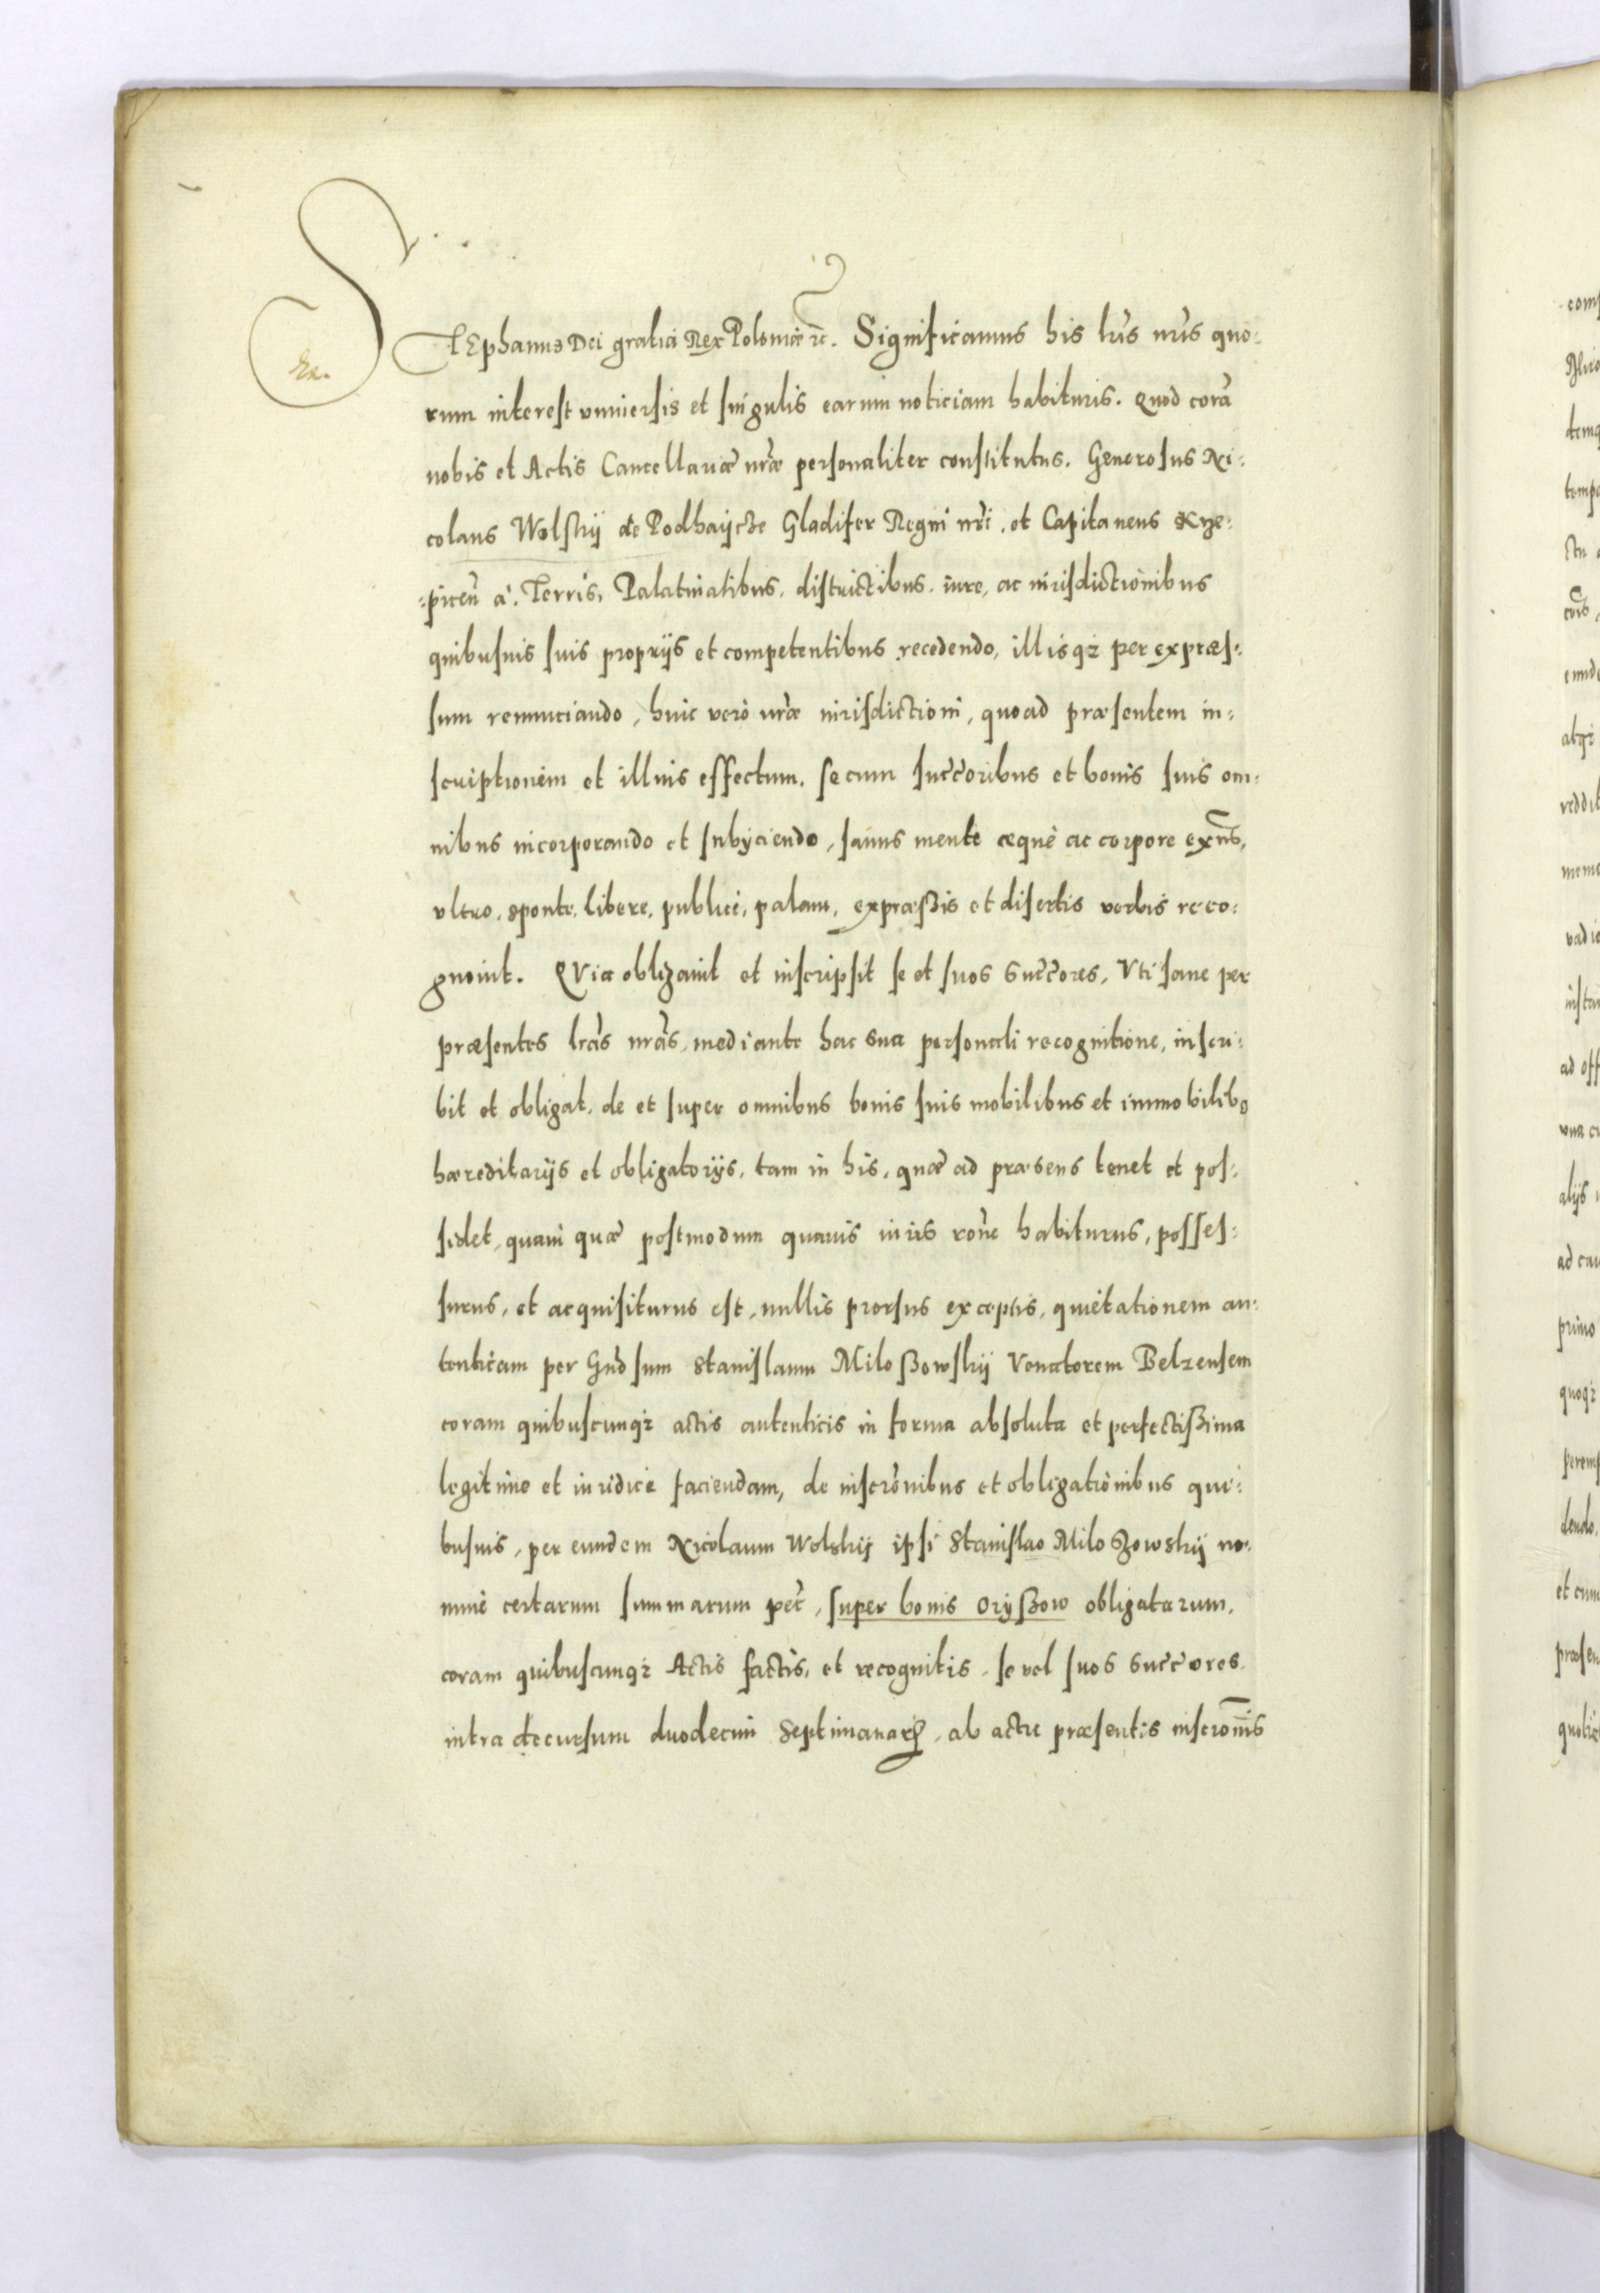 STEphanus Dei gratia Rex Poloniæ etc. Significamus his lr̃is nr̃is quo:
rum interest vniuersis et singulis earum noticiam habituris. Quod corã
nobis et Actis Cancellariæ nr̃æ personaliter constitutus. Generosus Ni:
colaus Wolskij de Podhaijcze Gladifer Regni nr̃i, et Capitaneus Krze:
:picen̄ à. Terris, Palatinatibus, districtibus, iure, ac iurisdictionibus
quibusuis suis proprijs et competentibus recedendo, illisq; per expræs:
sum renunciando, huic verò nr̃æ iurisdictioni, quoad præsentem in:
scriptionem et illius effectum, se cum succ̃oribus et bonis suis om:
nibus incorporando et subijciendo, sanus mente æquè ac corpore exñs,
vltro, sponte, libere, publicè, palam, expræßis et disertis verbis reco:
gnouit. QVia obligauit et inscripsit se et suos succ̃ores, Vti sane per
præsentes lr̃as nr̃as, mediante hac sua personali recognitione, inscri:
bit et obligat, de et super omnibus bonis suis mobilibus et immobilibꝫ
hæreditarijs et obligatorijs, tam in his, quæ ad præsens tenet et pos:
sidet, quam quæ postmodum quauis iuris rõne habiturus, posses:
surus, et acquisiturus est, nullis prorsus exceptis, quietationem au:
tenticam per Gñosum Stanislaum Miloßowskij Venatorem Belzensem
coram quibuscunq; actis autenticis in forma absoluta et perfectißima
legitime et iuridicè faciendam, de inscrõnibus et obligationibus qui:
busuis, per eundem Nicolaum Wolskij ipsi Stanislao Miloßowskij no:
mine certarum summarum pec̃, super bonis Orijßow obligatarum,
coram quibuscunq; Actis factis, et recognitis, se vel suos succ̃ores
intra decursum duodecim Septimanarꝝ, ab actu præsentis inscrõnis